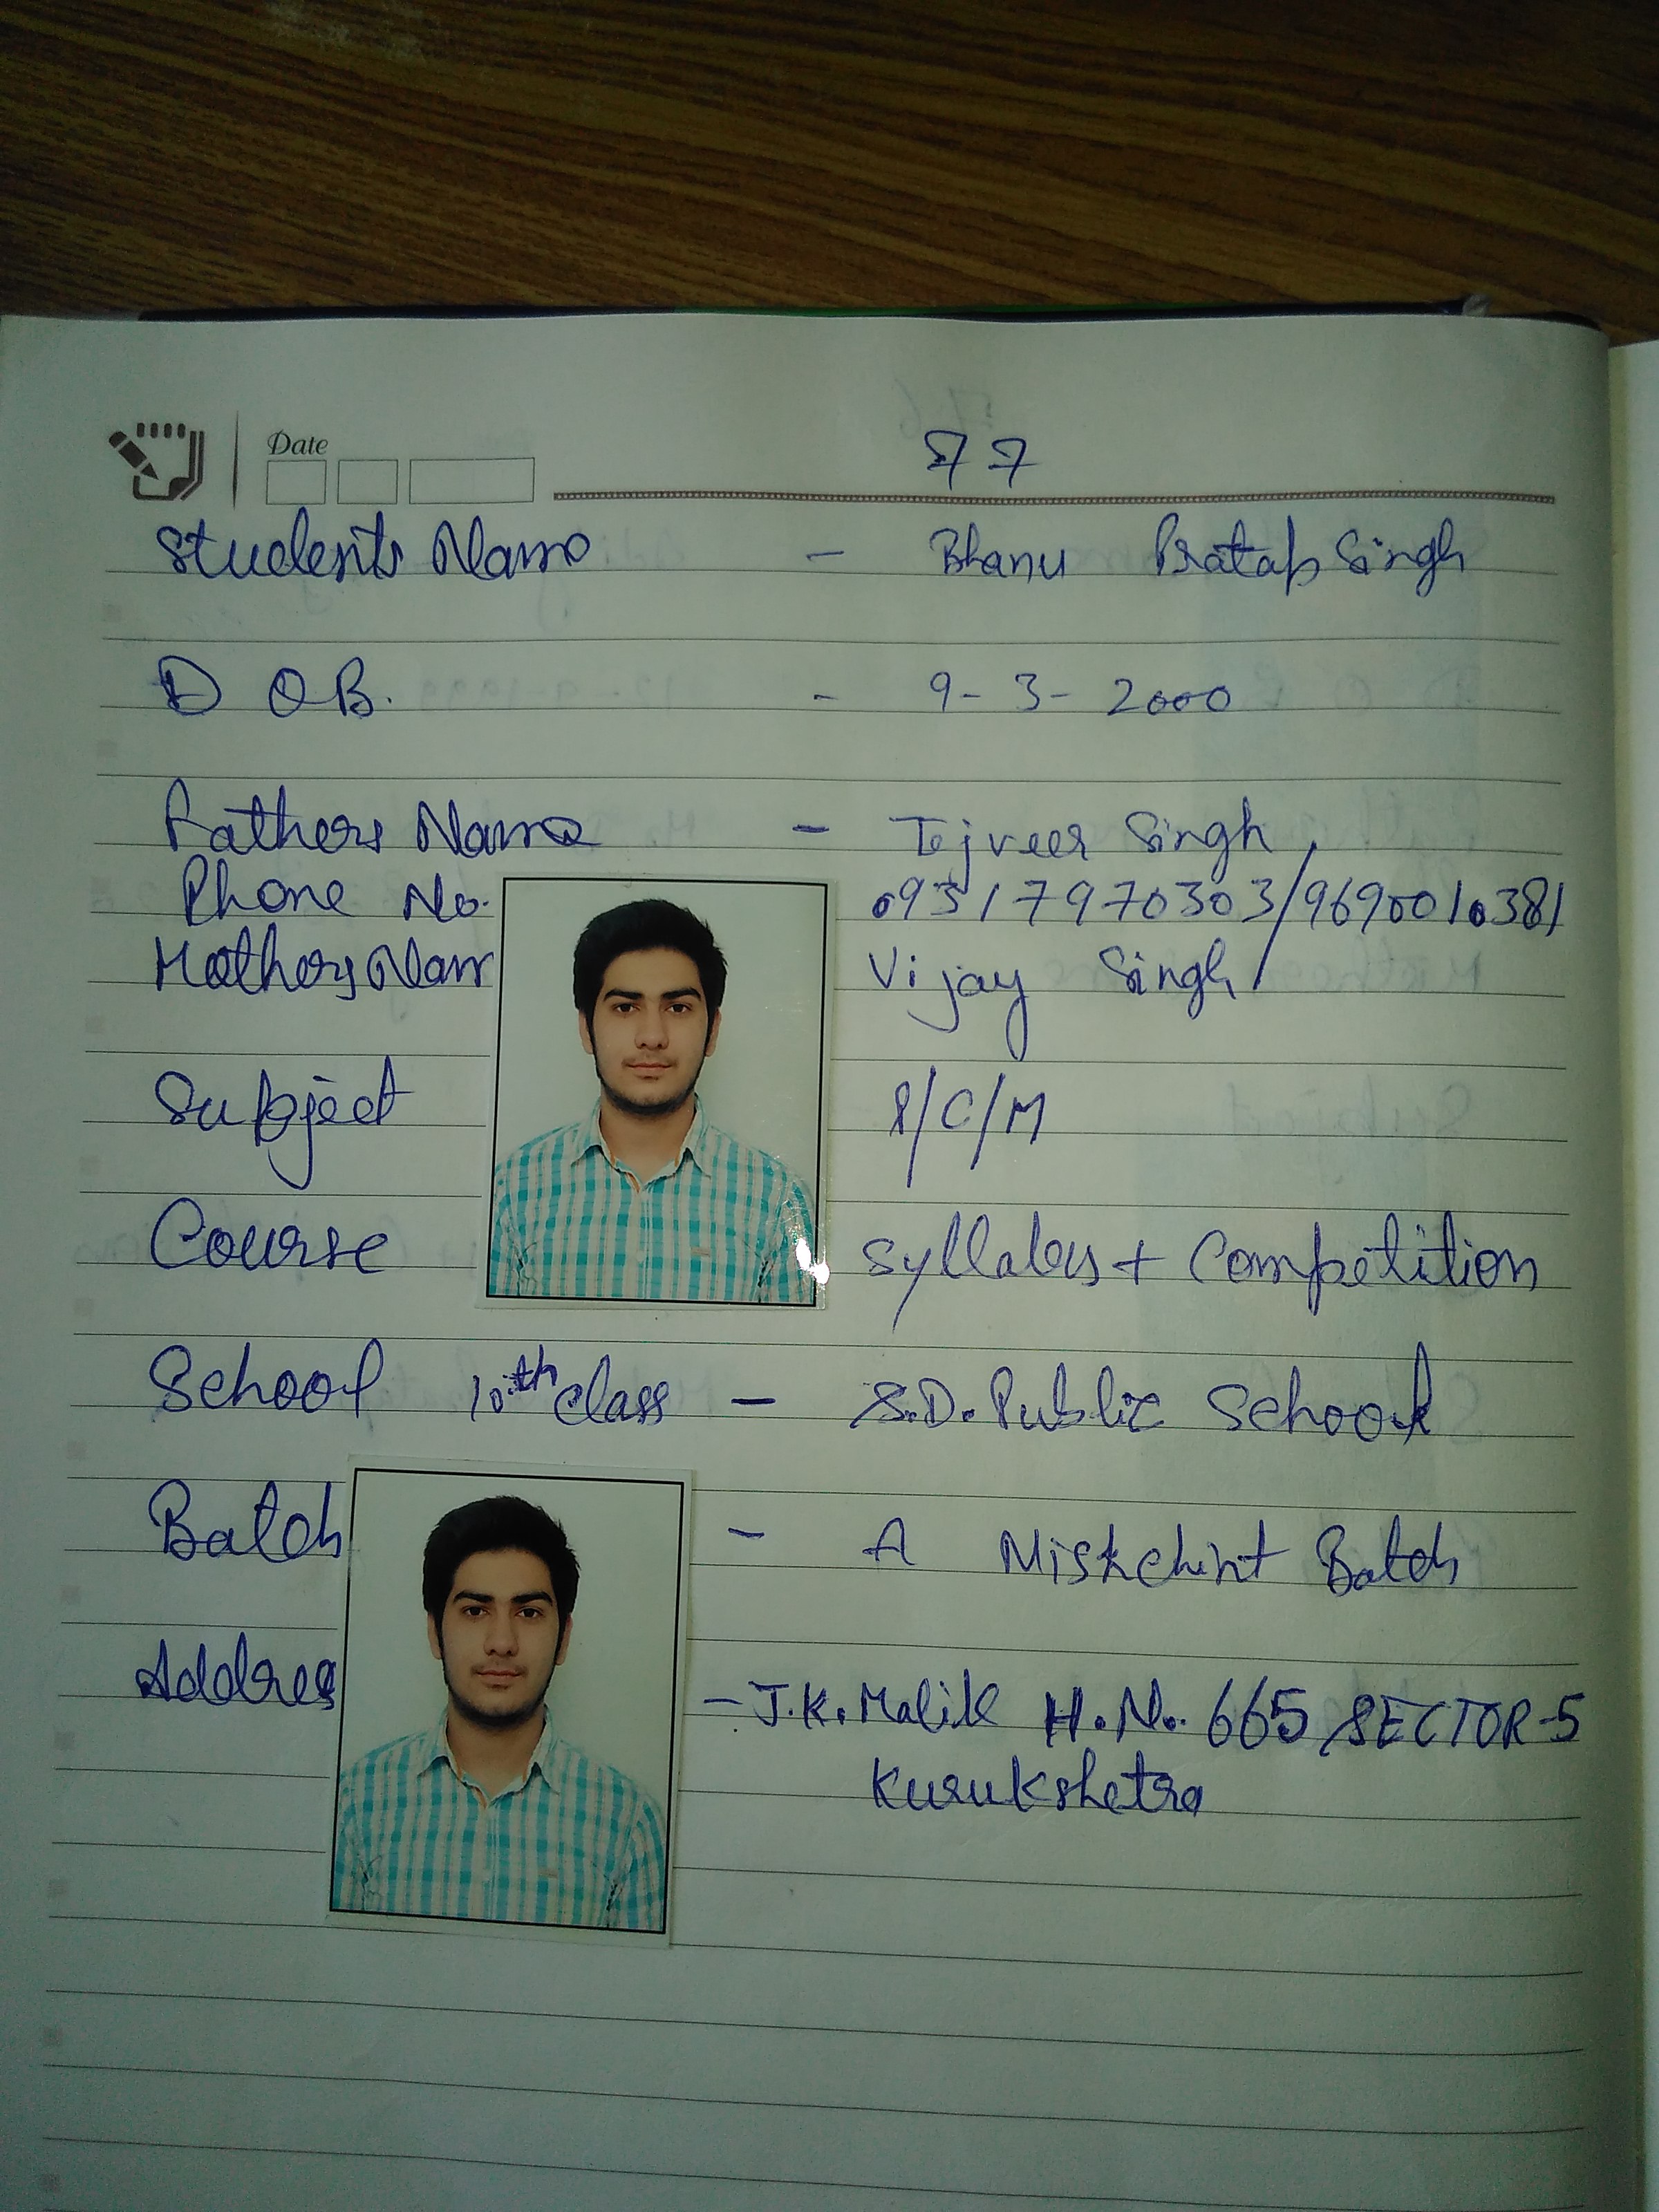 Date
77
Student's Name - Bhanu Pratap Singh
D O B. - 9-3-2000
Father's Name - Tejveer Singh
Phone No. 09317970303/9690010381
Mother's Nam Vijay Singh
Subject P/C/M
Course Syllabus + Competition
School 10th class - S.D. Public School
Batch - A Batch
Addres - J.K. Malik H. No. 665, SECTOR-5
Kurukshetra